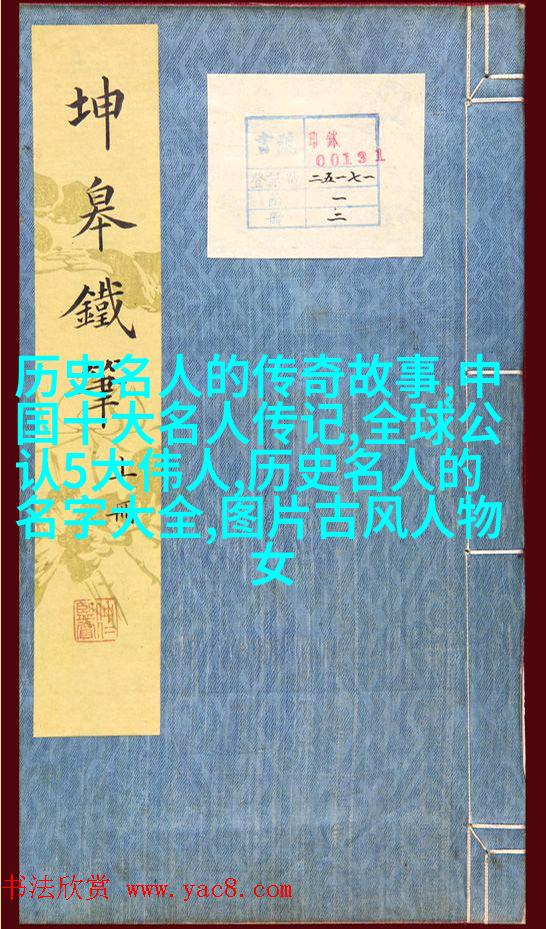 坤皋鐵筆
上冊
書號
印鉥
00131
二五一七一
一
冊
二
历史名人的传奇故事,中
国十大名人传记,全球公
认5大伟人,历史名人的
名字大全,图片古风人物
女
书法欣赏 www.yac8.com